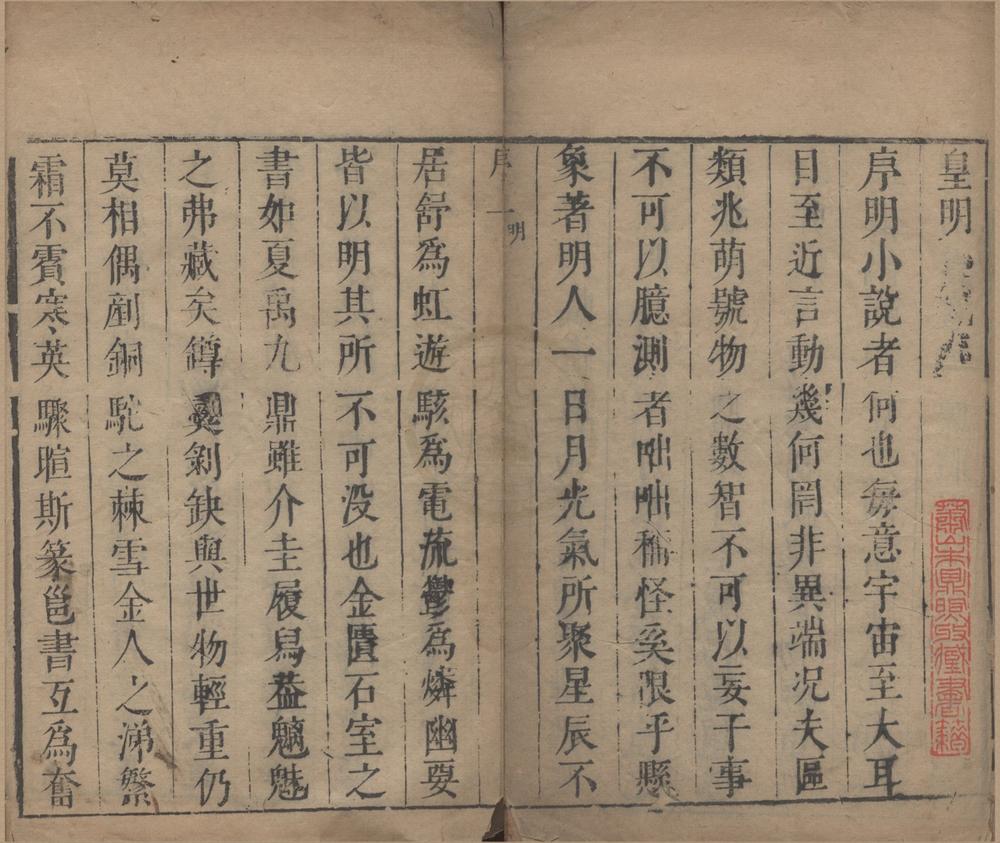 皇明
序明小說者何也每意宇宙至大耳
目至近言動幾何罔非異端況夫區
類兆萌號物之數智不可以妄干事
不可以臆測者咄咄稱怪奚限乎縣
象著明人一日月光氣所聚星辰不
序 一 明
居舒爲虹遊駭爲電蔬鬱爲燐幽要
皆以明其所不可没也金匱石室之
書如夏禹九鼎雖介圭履舄葢魑魅
之弗藏矣鐏彝剝缺與世物輕重仍
莫相偶剷銅駝之棘雪金人之涕繁
霜不賓寒英驟暄斯篆邕書互爲奮